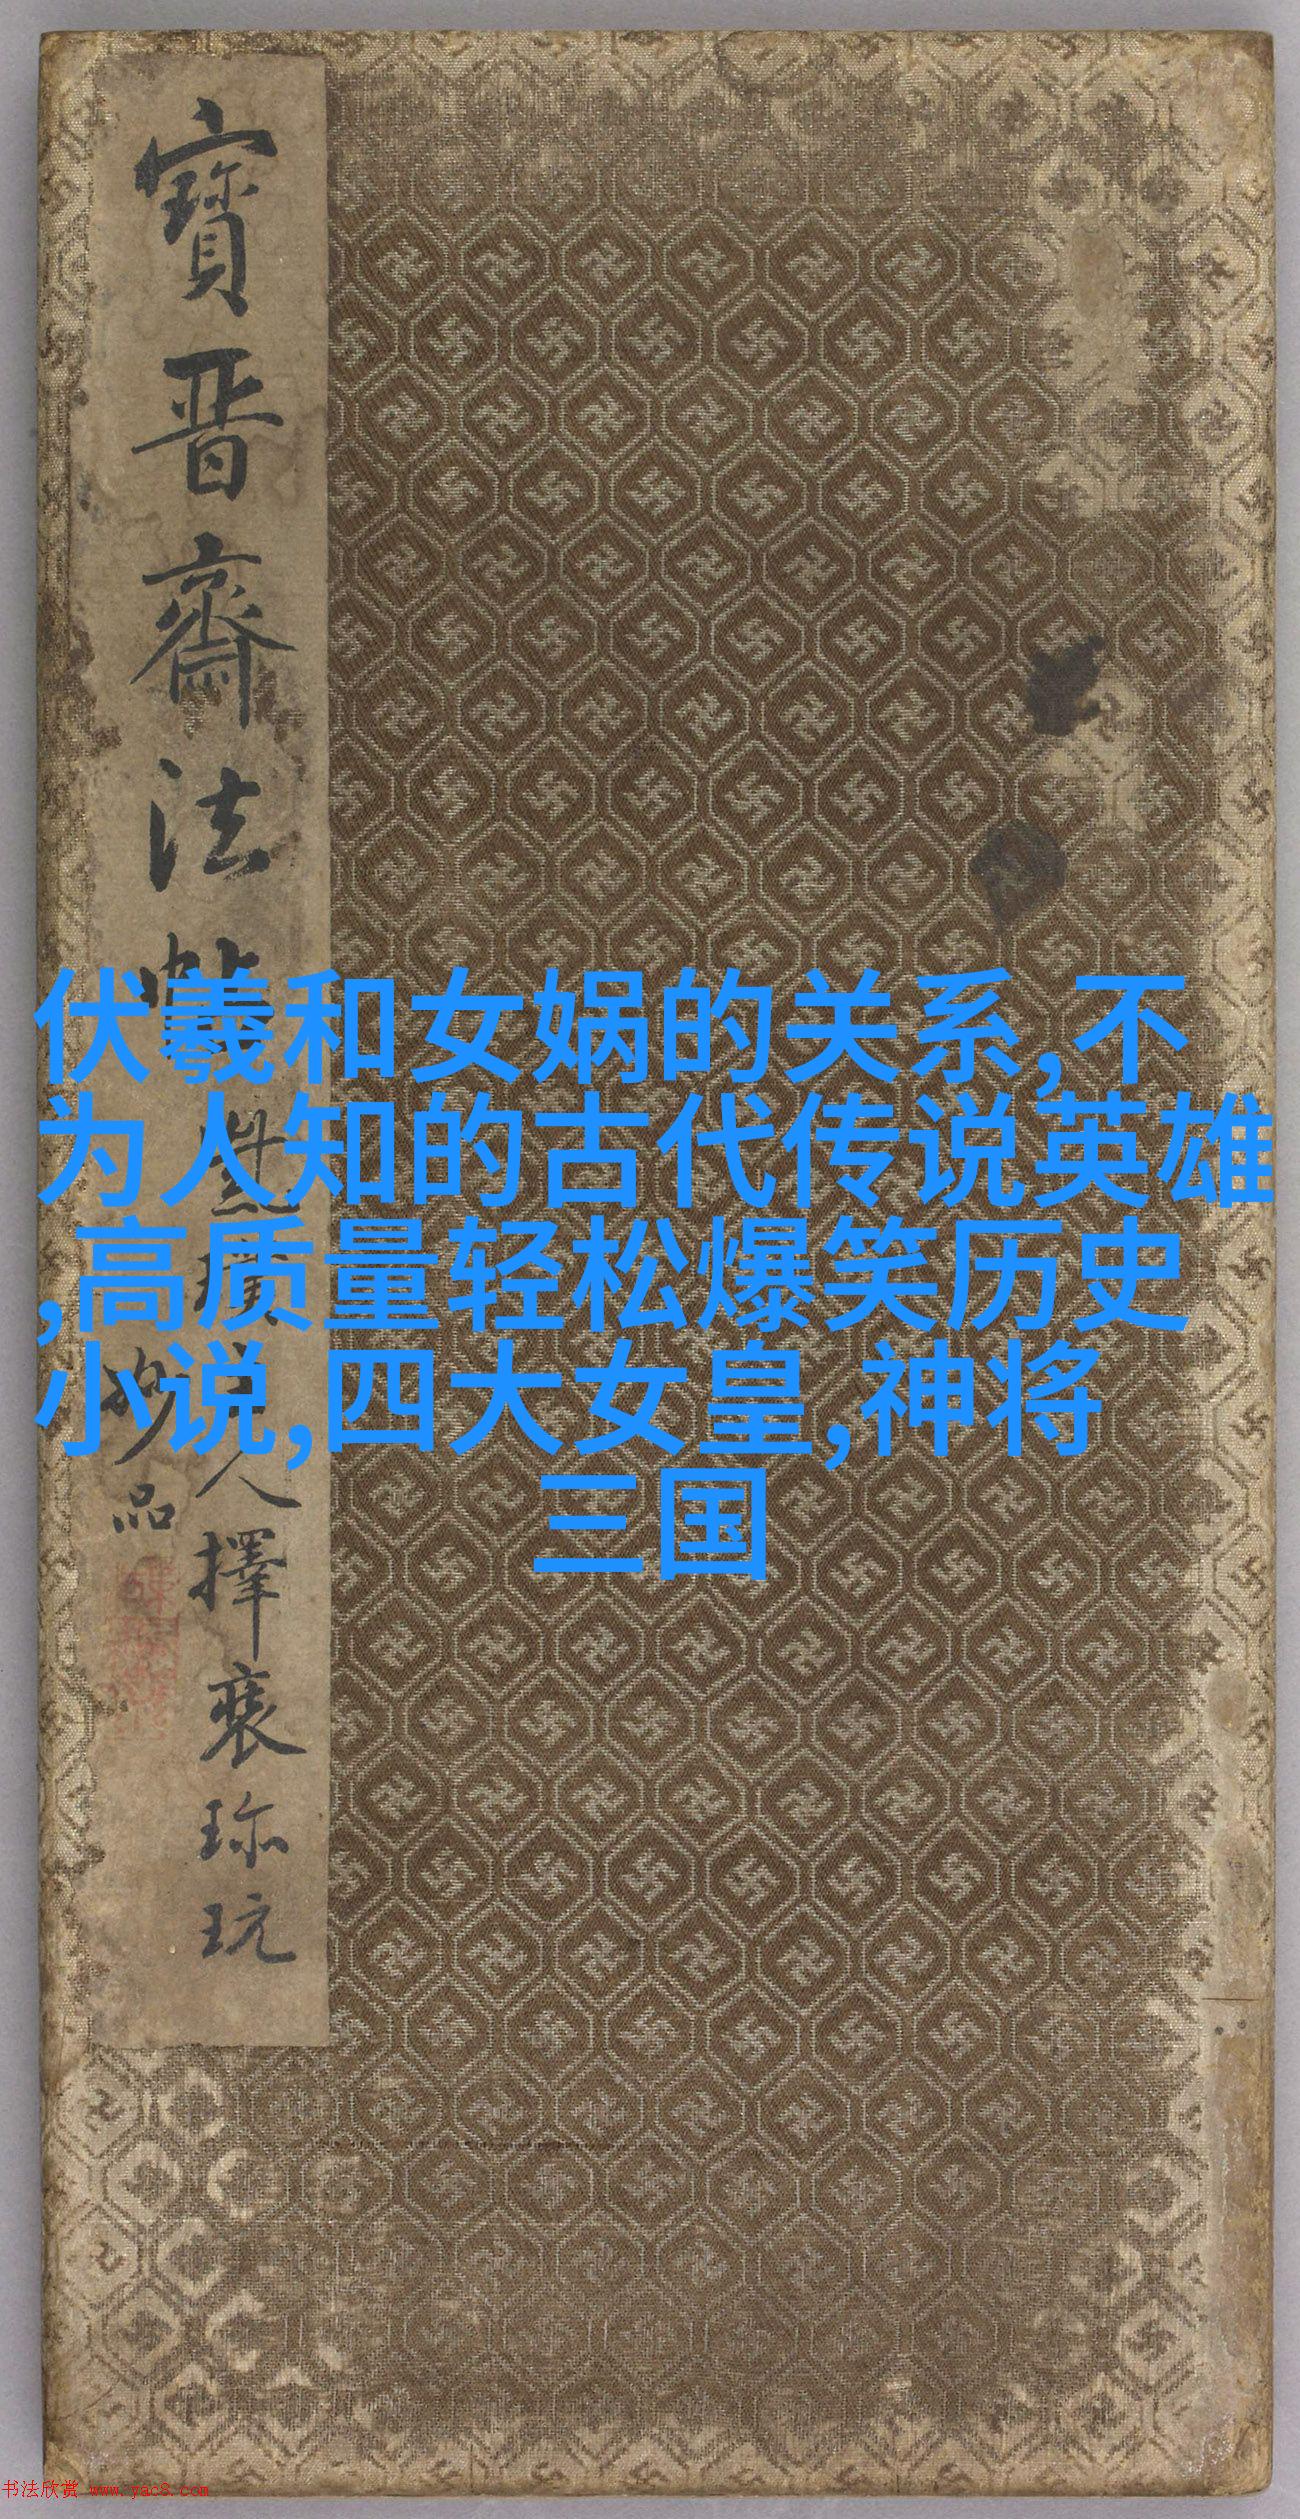 寶晉齋法帖
人擇裘珎玩
妙品
伏羲和女娲的关系,不
为人知的古代传说英雄
,高质量轻松爆笑历史
小说,四大女皇,神将
三国
书法欣赏 www.yac8.com